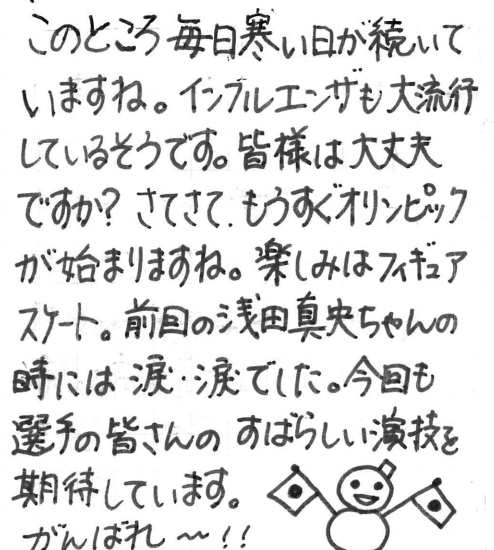 このところ毎日寒い日が続いて
いますね。インフルエンザも大流行
しているそうです。皆様は大丈夫
ですか？さてさて、もうすぐオリンピック
が始まりますね。楽しみはフィギュア
スケート。前回の浅田真央ちゃんの
時には涙・涙でした。今回も
選手の皆さんのすばらしい演技を
期待しています。
がんばれ〜!!